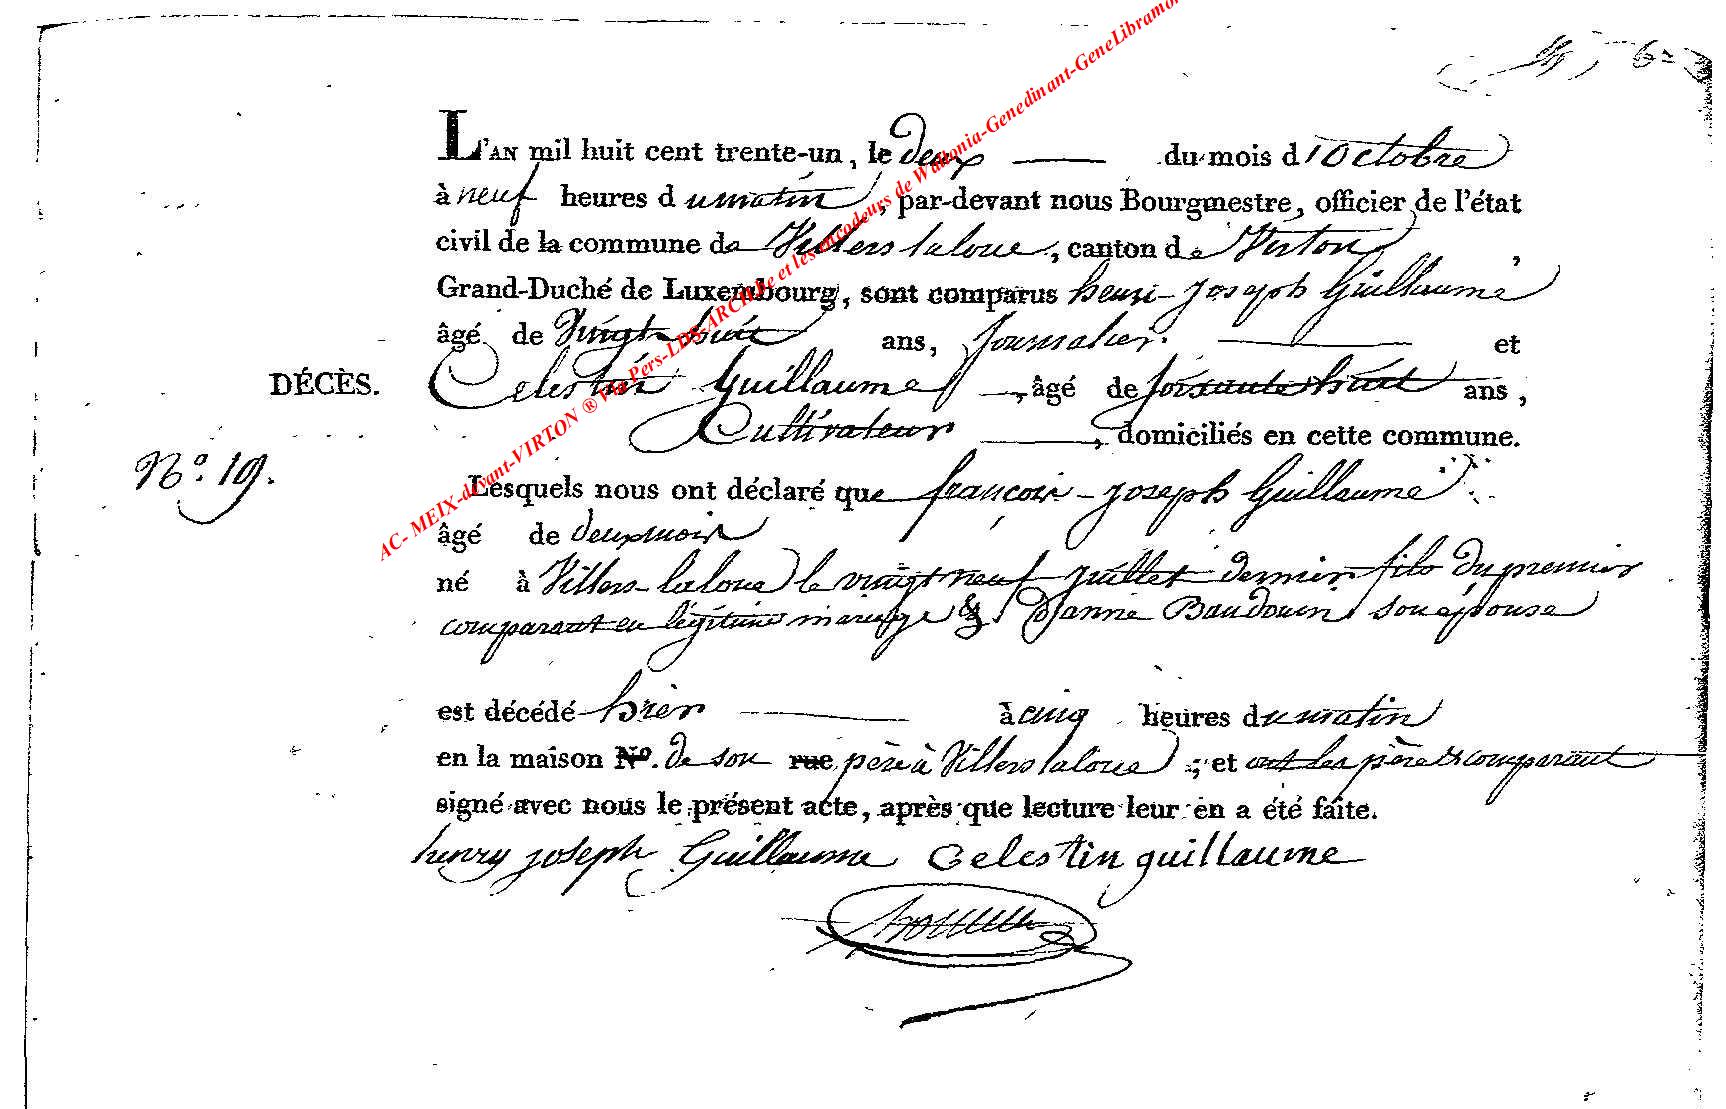 L'AN mil huit cent trente-un, le deux du mois d'Octobre
à neuf heures du matin, par-devant nous Bourgmestre, officier de l'état
civil de la commune de Villers laloue, canton de Virton,
Grand-Duché de Luxembourg, sont comparus henri-Joseph Guillaume
âgé de Vingt huit ans, Journalier. et
DÉCÈS. Celestin Guillaume, âgé de soixante huit ans,
Cultivateur, domiciliés en cette commune.
N.º 19. Lesquels nous ont déclaré que françois-Joseph Guillaume
âgé de deux mois
né à Villers-laloue le vingt neuf Juillet dernier fils du premier
comparant en légitime mariage & d'anne Baudouin son épouse
est décédé hier à cinq heures du matin
en la maison Nº. de son rue père à Villers laloue; et ont les père & comparant
signé avec nous le présent acte, après que lecture leur en a été faite.
henry joseph Guillaume Celestin guillaume
AC- MEIX-devant-VIRTON ® Via Pers-LDS-ARCHive et les encodeurs de Wallonia-Genedinant-GeneLibramon